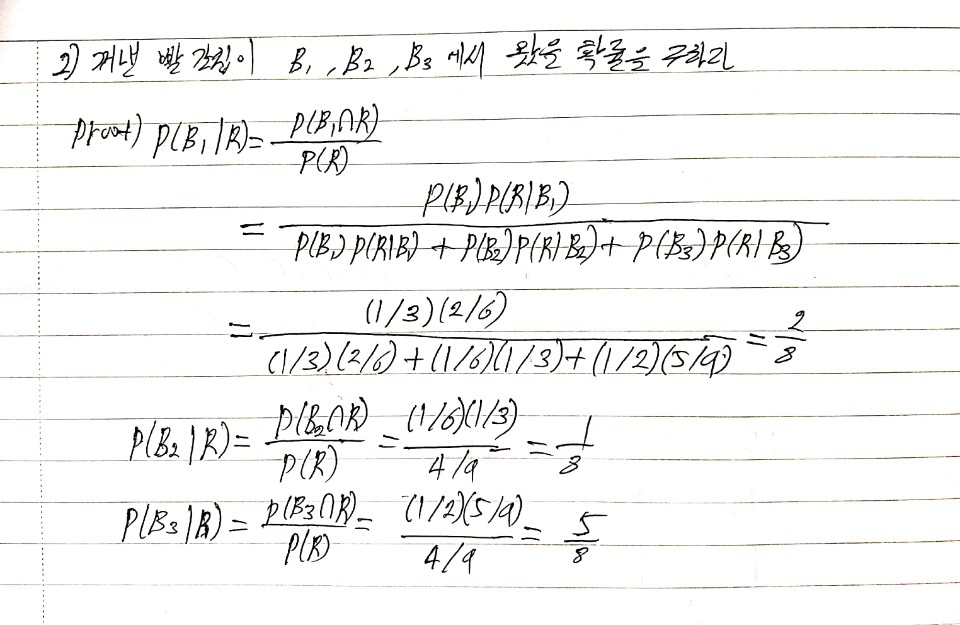 2) 꺼낸 빨간칩이 B₁, B₂, B₃에서 왔을 확률을 구하라
Proof) P(B₁|R) = P(B₁∩R) / P(R)
= P(B₁)P(R|B₁) / P(B₁)P(R|B₁) + P(B₂)P(R|B₂) + P(B₃)P(R|B₃)
= (1/3)(2/6) / (1/3)(2/6) + (1/6)(1/3) + (1/2)(5/9) = 2/8
P(B₂|R) = P(B₂∩R) / P(R) = (1/6)(1/3) / 4/9 = 1/8
P(B₃|R) = P(B₃∩R) / P(R) = (1/2)(5/9) / 4/9 = 5/8